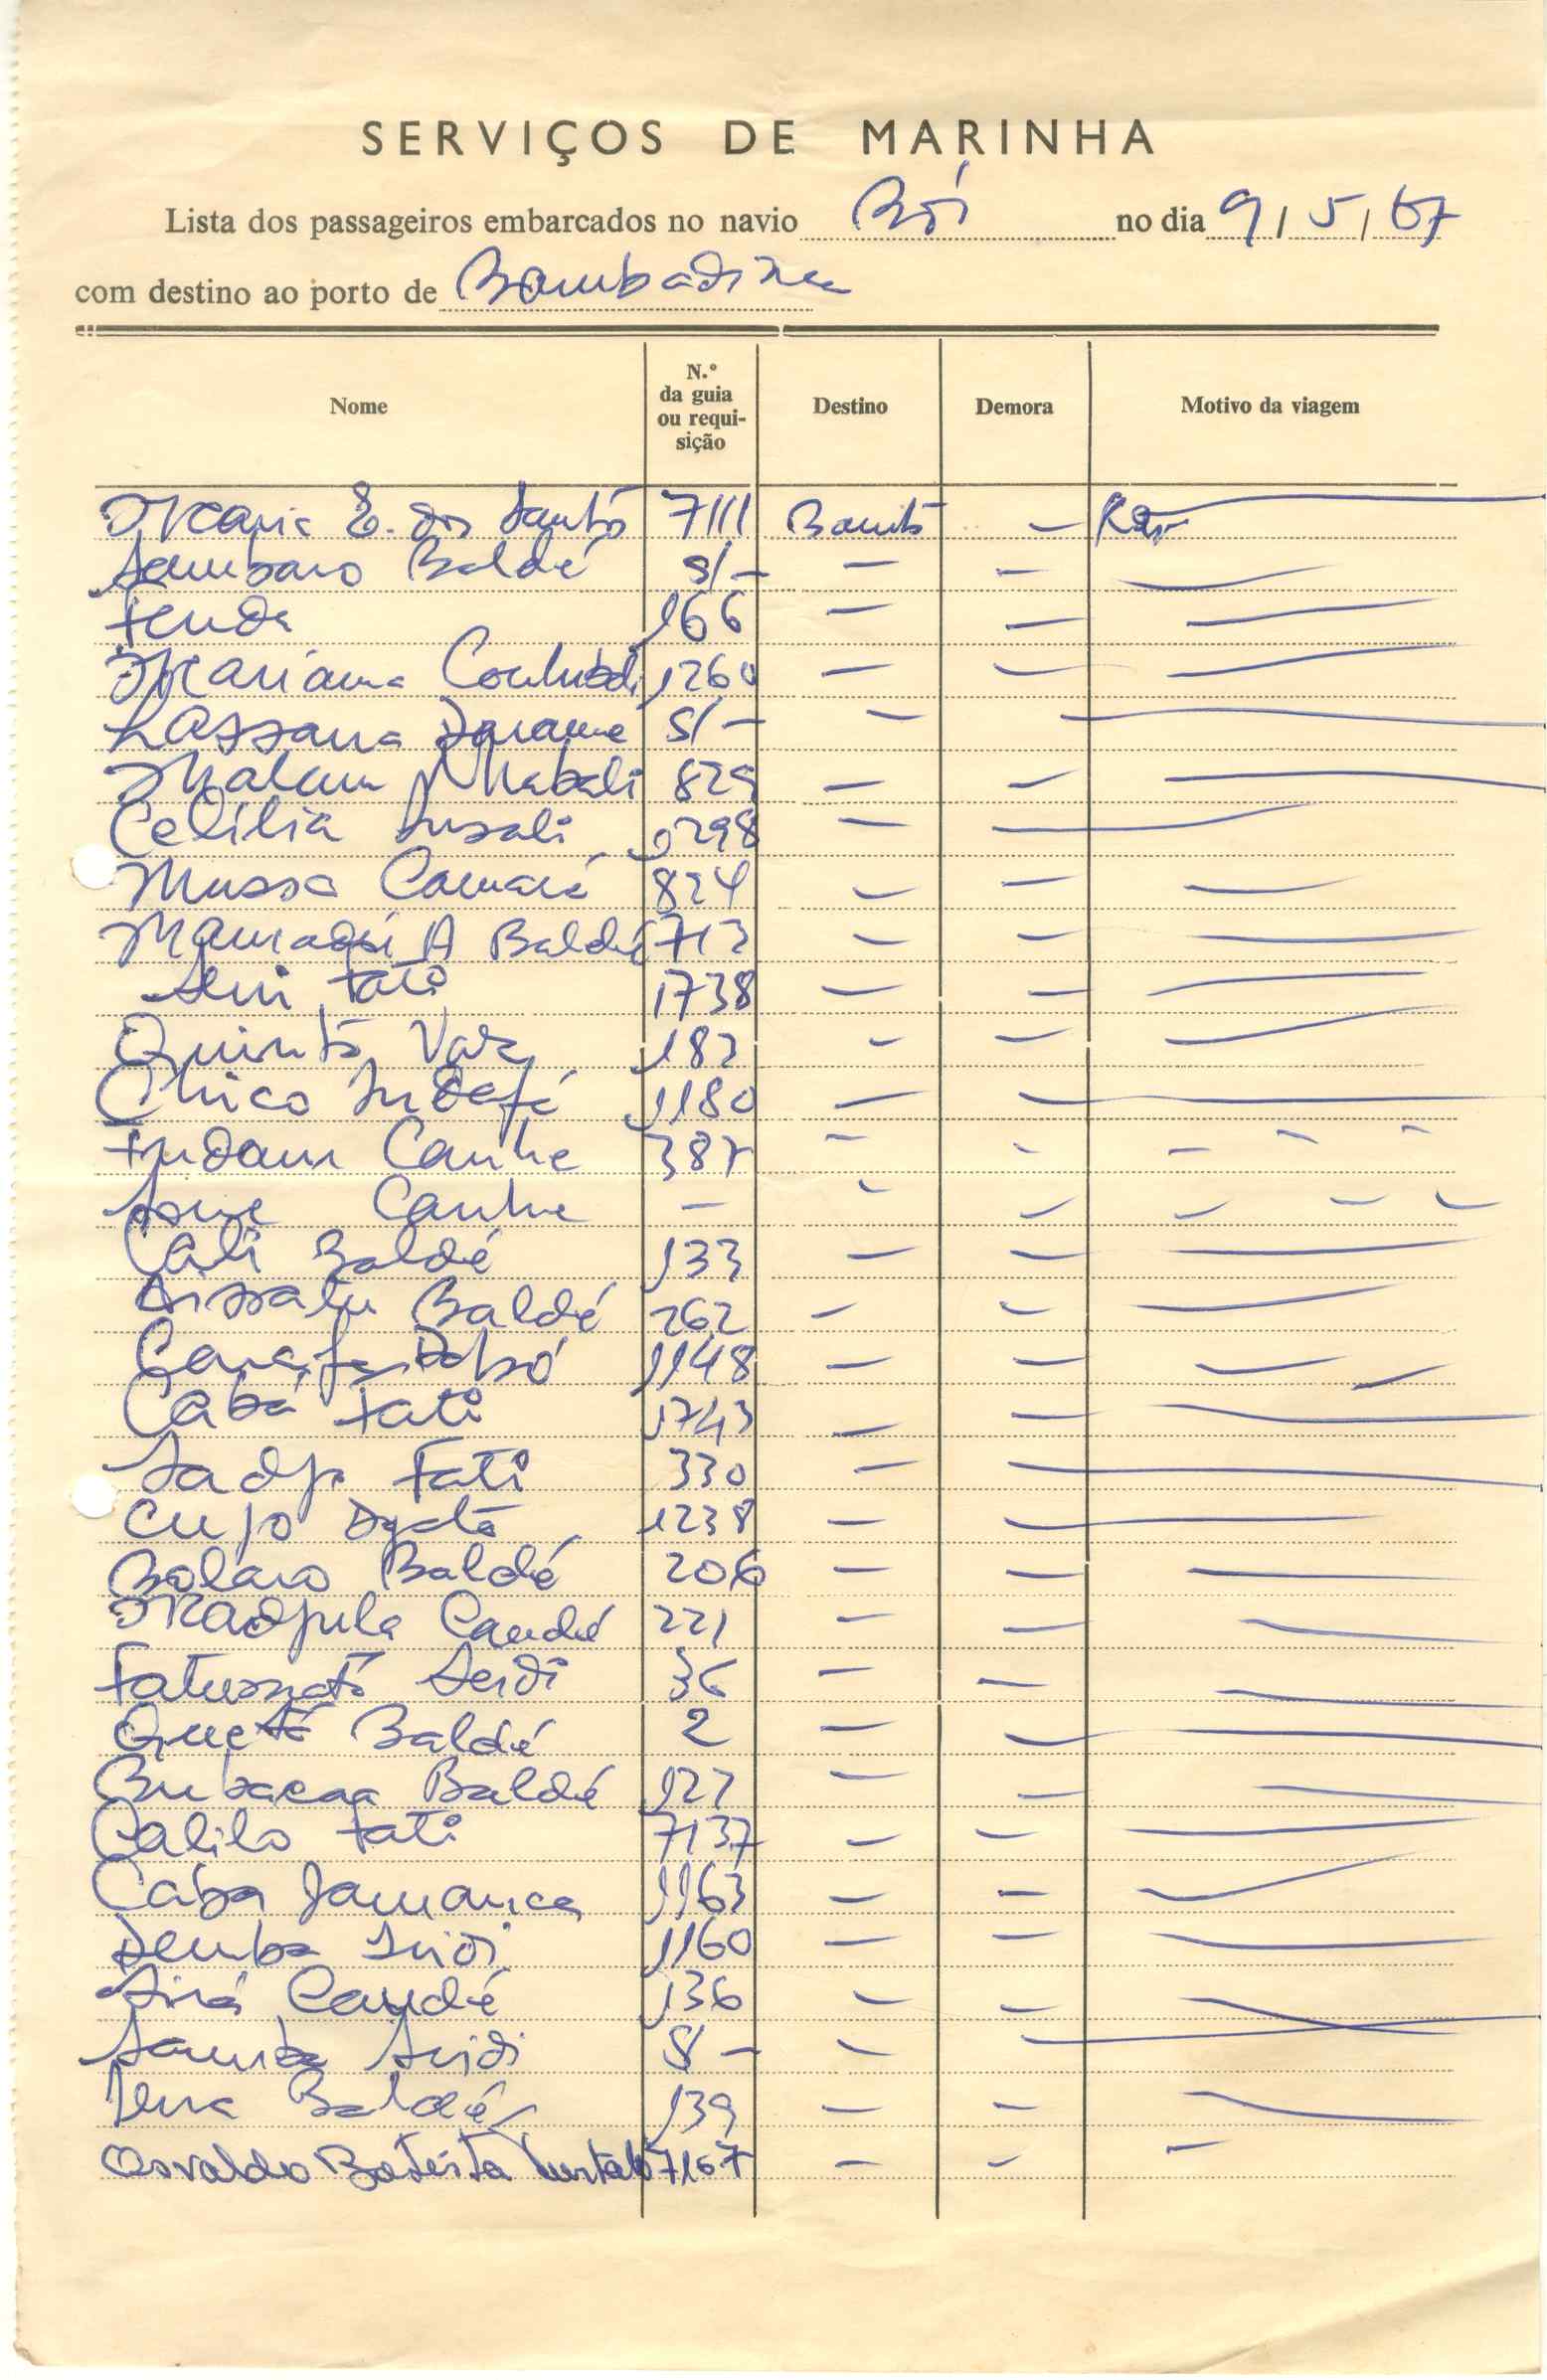 SERVIÇOS DE MARINHA
Lista dos passageiros embarcados no navio Bór no dia 9/5/67
com destino ao porto de Bambadinca
Nome N.º da guia ou requi-sição Destino Demora Motivo da viagem
Maria E. dos Santos 7111 –
Sambaro Baldé s/– – –
Tenda 166 – –
Mariama 1260 – –
Lassana Darame s/– –
Malam Nhabali 829 – –
Celília –
Mussa Camará 824 – –
Mamadú A Baldé 713 – –
Seni Fati 1738 – –
Quintó Vaz 182 – –
Chico Indafá 1180 – –
Indam Canhe 387 – – – – –
Canhe – – – – – –
Cali Baldé 133 – –
Aissatu Baldé 262 – –
1148 – –
Cabá Fati 1743 – –
Sadjo Fati 330 –
Cujo 1238 –
Bolaro Baldé 206 – –
Madjula Candé 221 – –
Seidi 36 – –
Quetá Baldé 2 – –
Bubacar Baldé 127 – –
Calilo Fati 7137 – –
Caba Jamanca 1163 – –
Demba Seidi 1160 – –
Sirá Candé 136 – –
Samba Seidi S/– –
Baldé 139 – –
Osvaldo Batista 7167 – – –